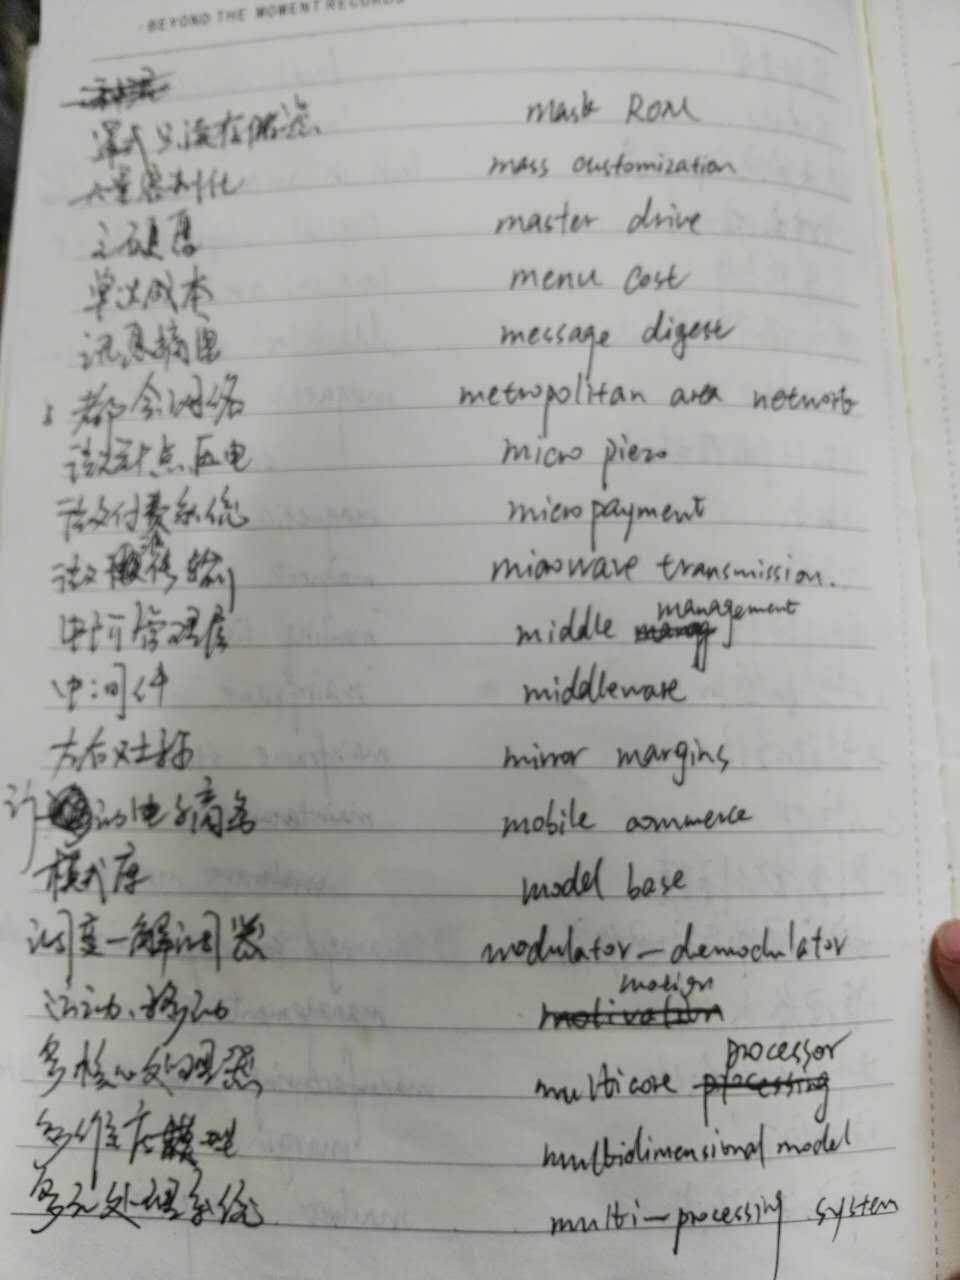 BEYOND THE MOMENT RECORDS
罩式只读存储器 mask ROM
大量客制化 mass customization
主硬盘 master drive
单次成本 menu cost
讯息摘要 message digest
都会网络 metropolitan area network
微针点压电 micro piezo
微付费系统 micropayment
微波传输 microwave transmission.
中阶管理层 middle management
中间件 middleware
左右对称 mirror margins
行动电子商务 mobile commerce
模式库 model base
调变-解调器 modulator-demodulator
运动、移动 motion
多核心处理器 multicore processor
多维度模型 multidimensional model
多元处理系统 multi-processing system